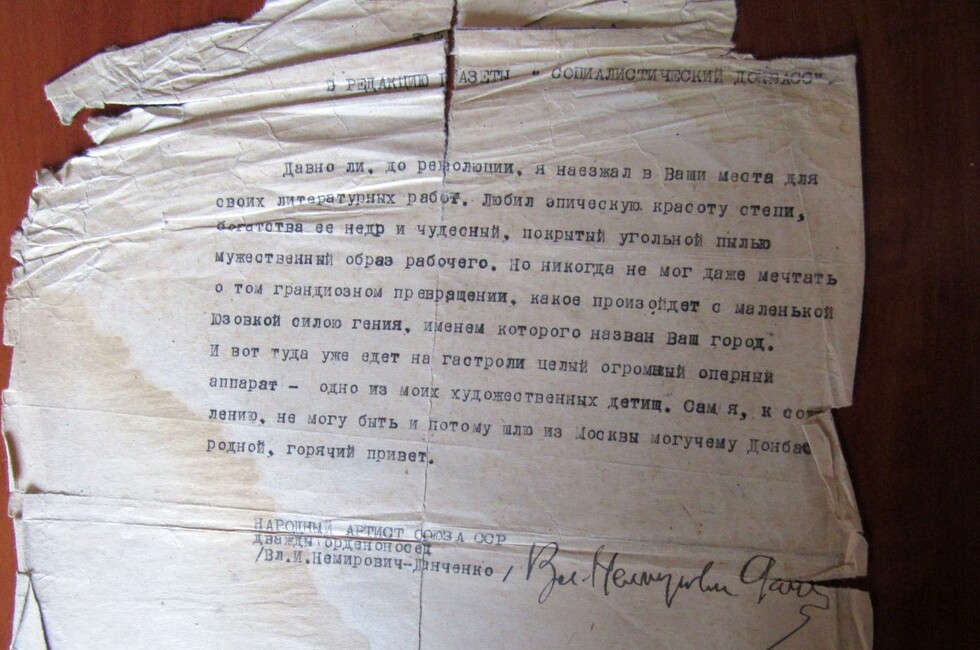 В РЕДАКЦИЮ ГАЗЕТЫ " СОЦИАЛИСТИЧЕСКИЙ ДОНБАСС".
Давно ли, до революции, я наезжал в Ваши места для
своих литературных работ. Любил эпическую красоту степи,
богатства ее недр и чудесный, покрытый угольной пылью
мужественный образ рабочего. Но никогда не мог даже мечтать
о том грандиозном превращении, какое произойдет с маленькой
Юзовкой силою гения, именем которого назван Ваш город.
И вот туда уже едет на гастроли целый огромный оперный
аппарат - одно из моих художественных детищ. Сам я, к со
лению, не могу быть и потому шлю из Москвы могучему Донбас
родной, горячий привет.
НАРОДНЫЙ АРТИСТ СОЮЗА ССР
дважды орденоносец
/Вл.И.Немирович-Данченко/ Вл. Немирович Данч